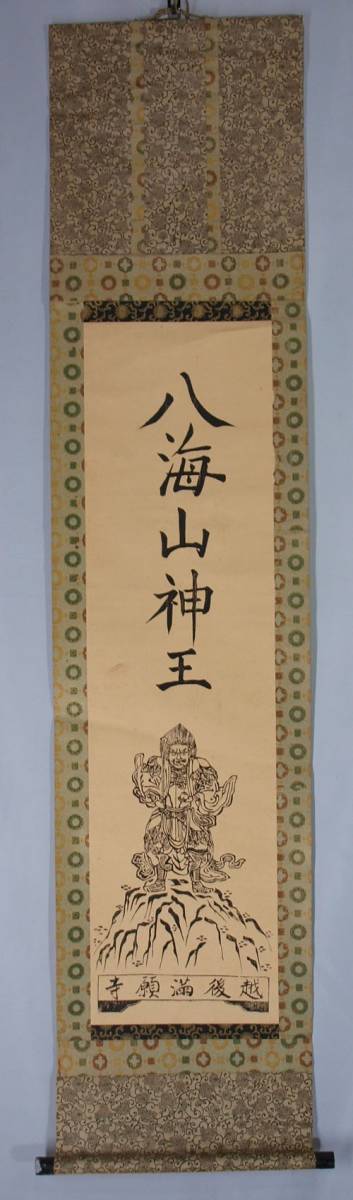 八海山神王
越後滿願寺